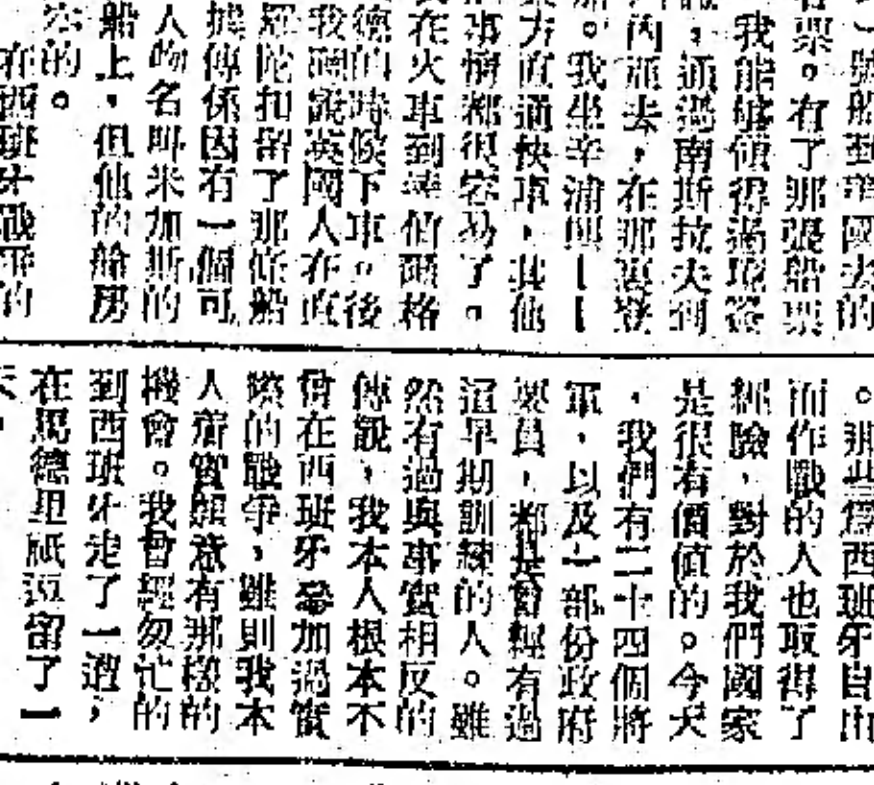 一號船到華國去的
船票。有了那張船票
我能够領得過境簽
,通過南斯拉夫到
內河去,在那裏登
船。我坐辛浦倫——
東方直通快車,其他
事情都很容易了。
在火車到達伯爾格
德的時候下車。後
我聽說英國人在直
羅陀扣留了那條船
據傳係因有一個可
人的名叫米加斯的
船上,但他的艙房
空的。
在西班牙戰爭的
。那些爲西班牙自由
而作戰的人也取得了
經驗,對於我們國家
是很有價值的。今天
,我們有二十四個將
軍,以及一部份政府
要員,都是曾經有過
這早期訓練的人。雖
然有過與事實相反的
傳說,我本人根本不
曾在西班牙參加過實
際的戰爭,雖則我本
人着實願意有那樣的
機會。我曾經匆忙的
到西班牙走了一遭,
在馬德里祇逗留了一
天,